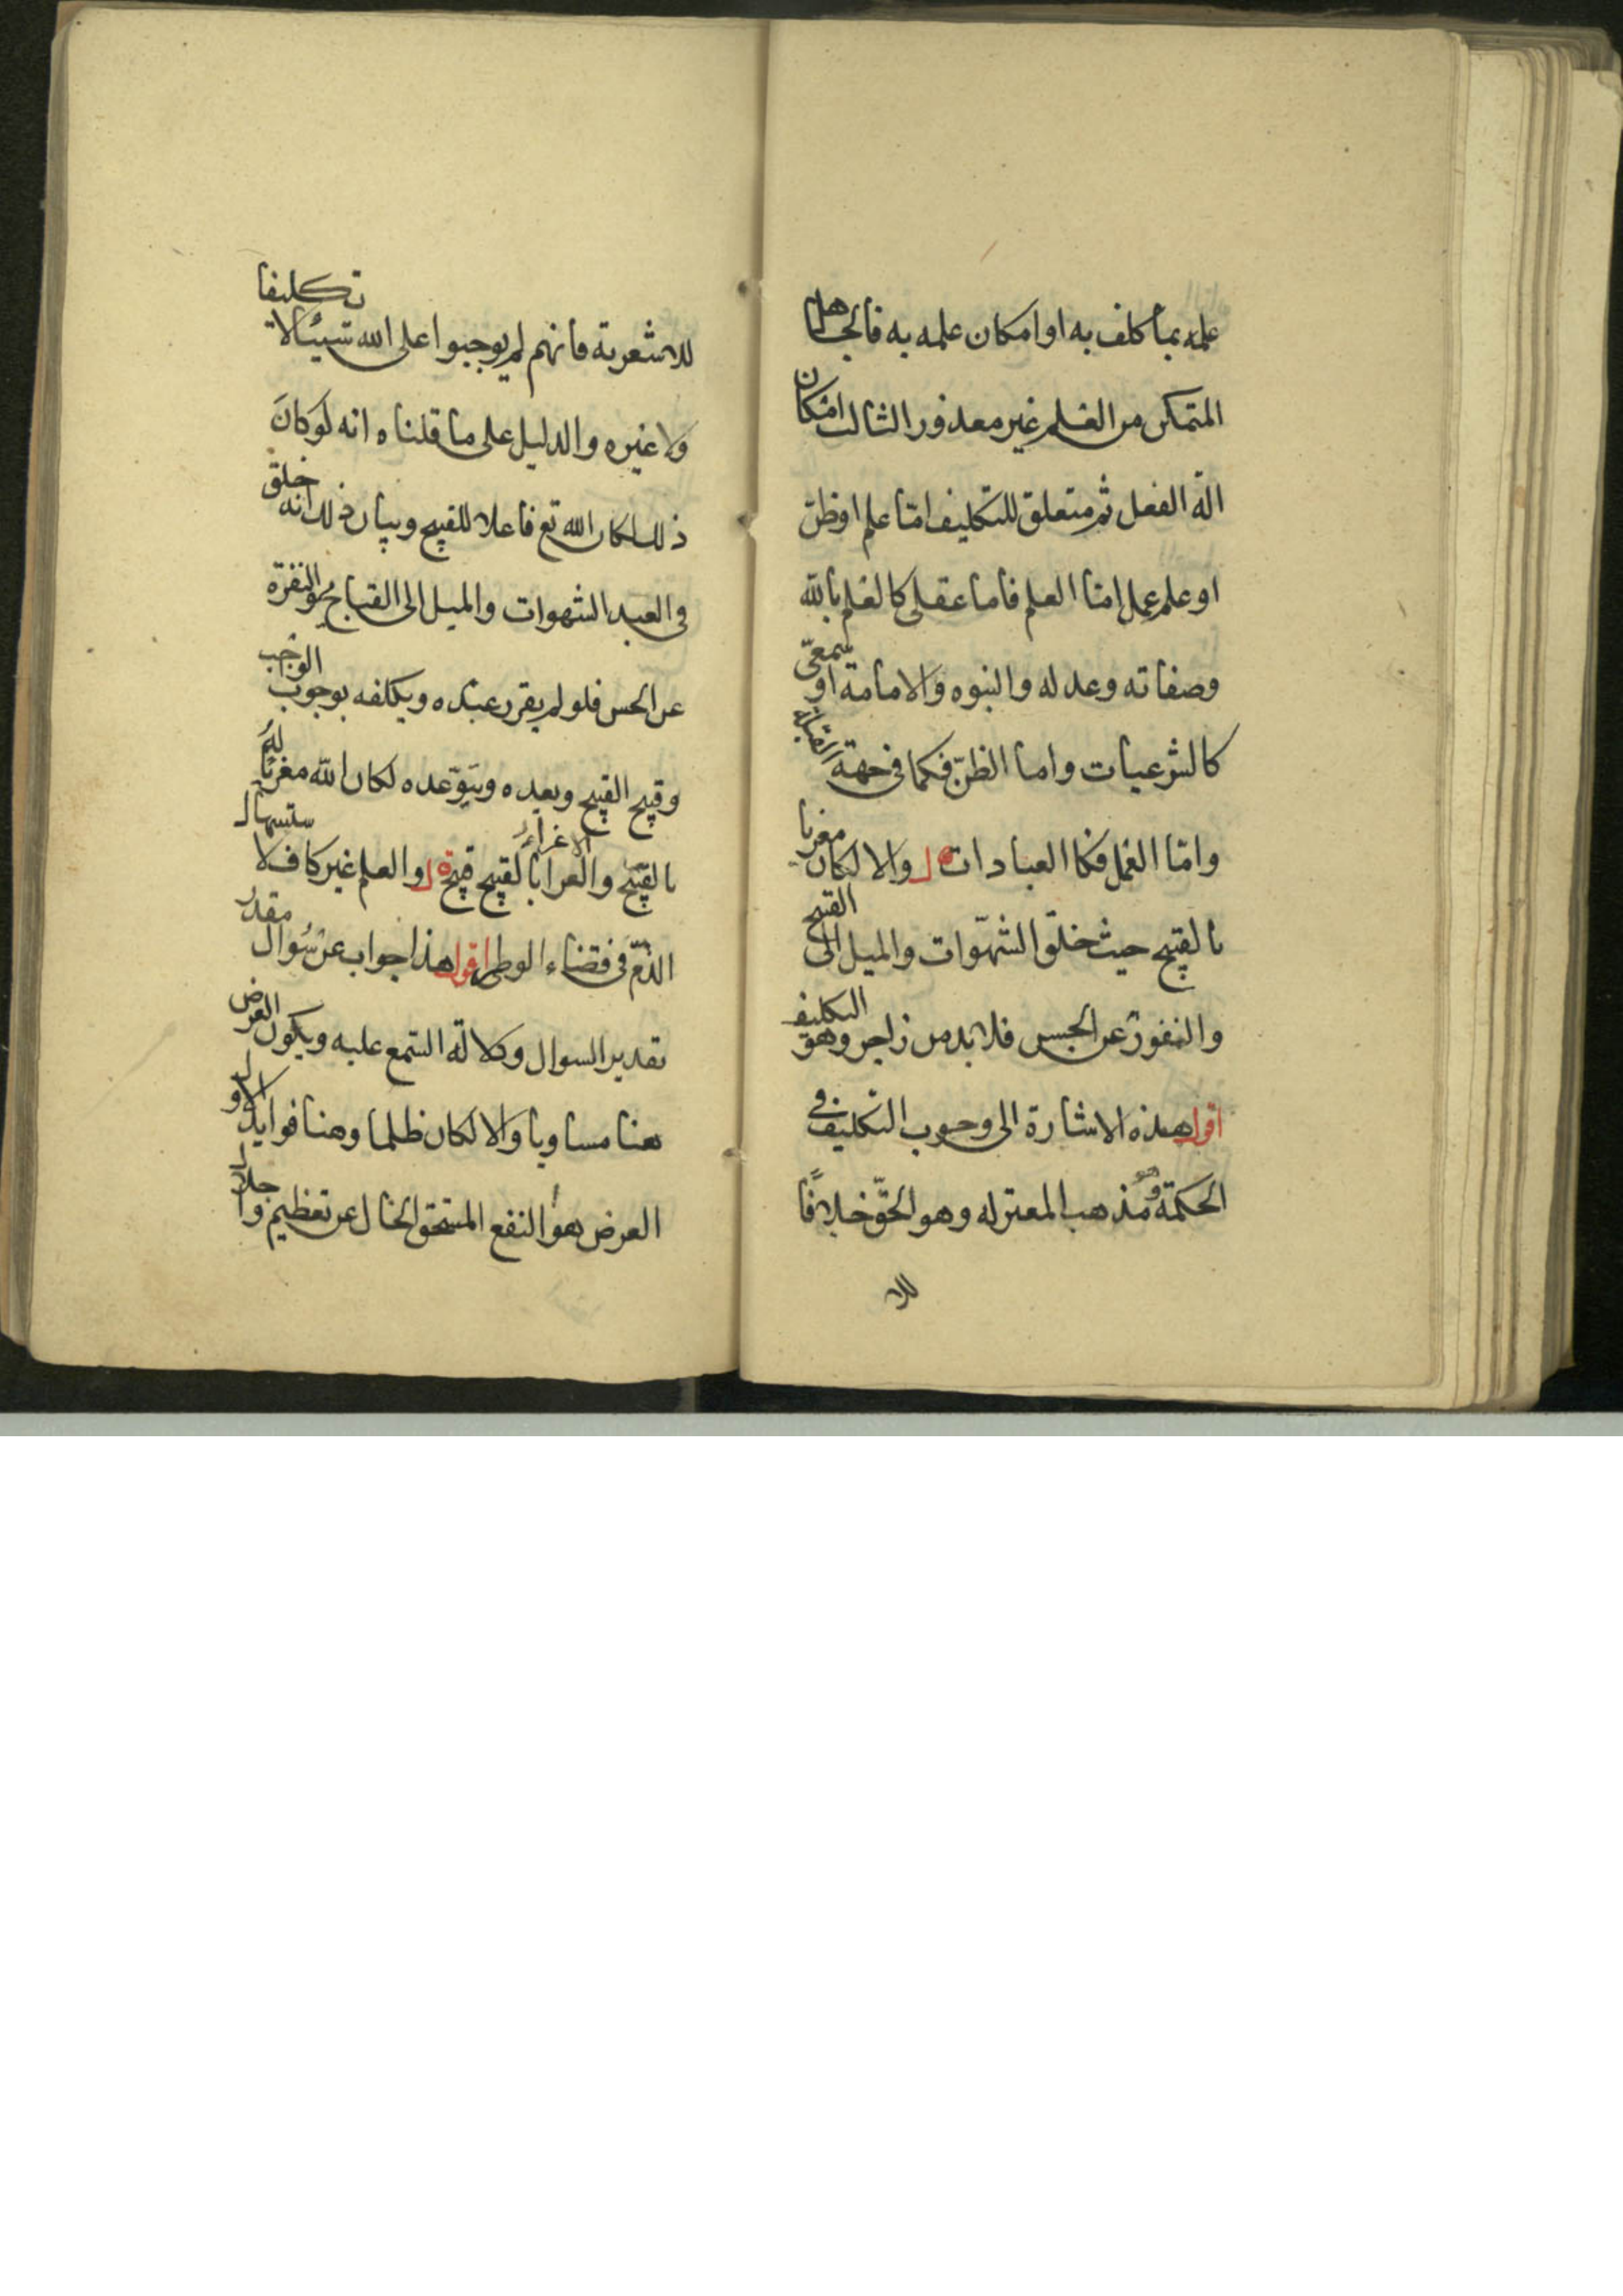 علمه بما كلف به او امكان علمه به فالجاهل
المتمكن من العلم غير معذور الثالث امكان
الة الفعل ثم متعلق التكليف اما علم او ظن
او علم عمل اما العلم فاما عقلى كالعلم بالله
وصفاته وعدله والنبوه والامامة او سمعى
كالشرعيات واما الظن فكما فى جهة القبلة
واما العمل فكا العبادات قال والا لكان مغريا
بالقبيح حيث خلق الشهوات والميل الى القبيح
والنفور عن الحسن فلا بد من زاجر وهو التكليف
اقول هذه الاشارة الى وجوب التكليف فى
الحكمة وهو مذهب المعتزله وهو الحق خلافا
للا
للاشعرية فانهم لم يوجبوا على الله شيئا لا تكليفا
ولا غيره والدليل على ما قلناه انه لو كان
ذلك لكان الله تع فاعلا للقبيح وبيان ذلك انه خلق
فى العبد الشهوات والميل الى القبايح والنفرة
عن الحسن فلو لم يقرر عبده ويكلفه بوجوب الواجب
وقبح القبيح ويعده ويتوعده لكان الله مغريا له
بالقبيح والغرا بالقبيح قبيح قال والعلم غير كاف لا ستسهال
الاغراء
الذم فى قضاء الوطر اقول هذا جواب عن سوال مقدر
تقدير السوال وكلالة السمع عليه ويكون العرض
هنا مساويا والا لكان ظلما وهنا فوايد الاول
العرض هو النفع المستحق الخال عن تعظيم واجلال